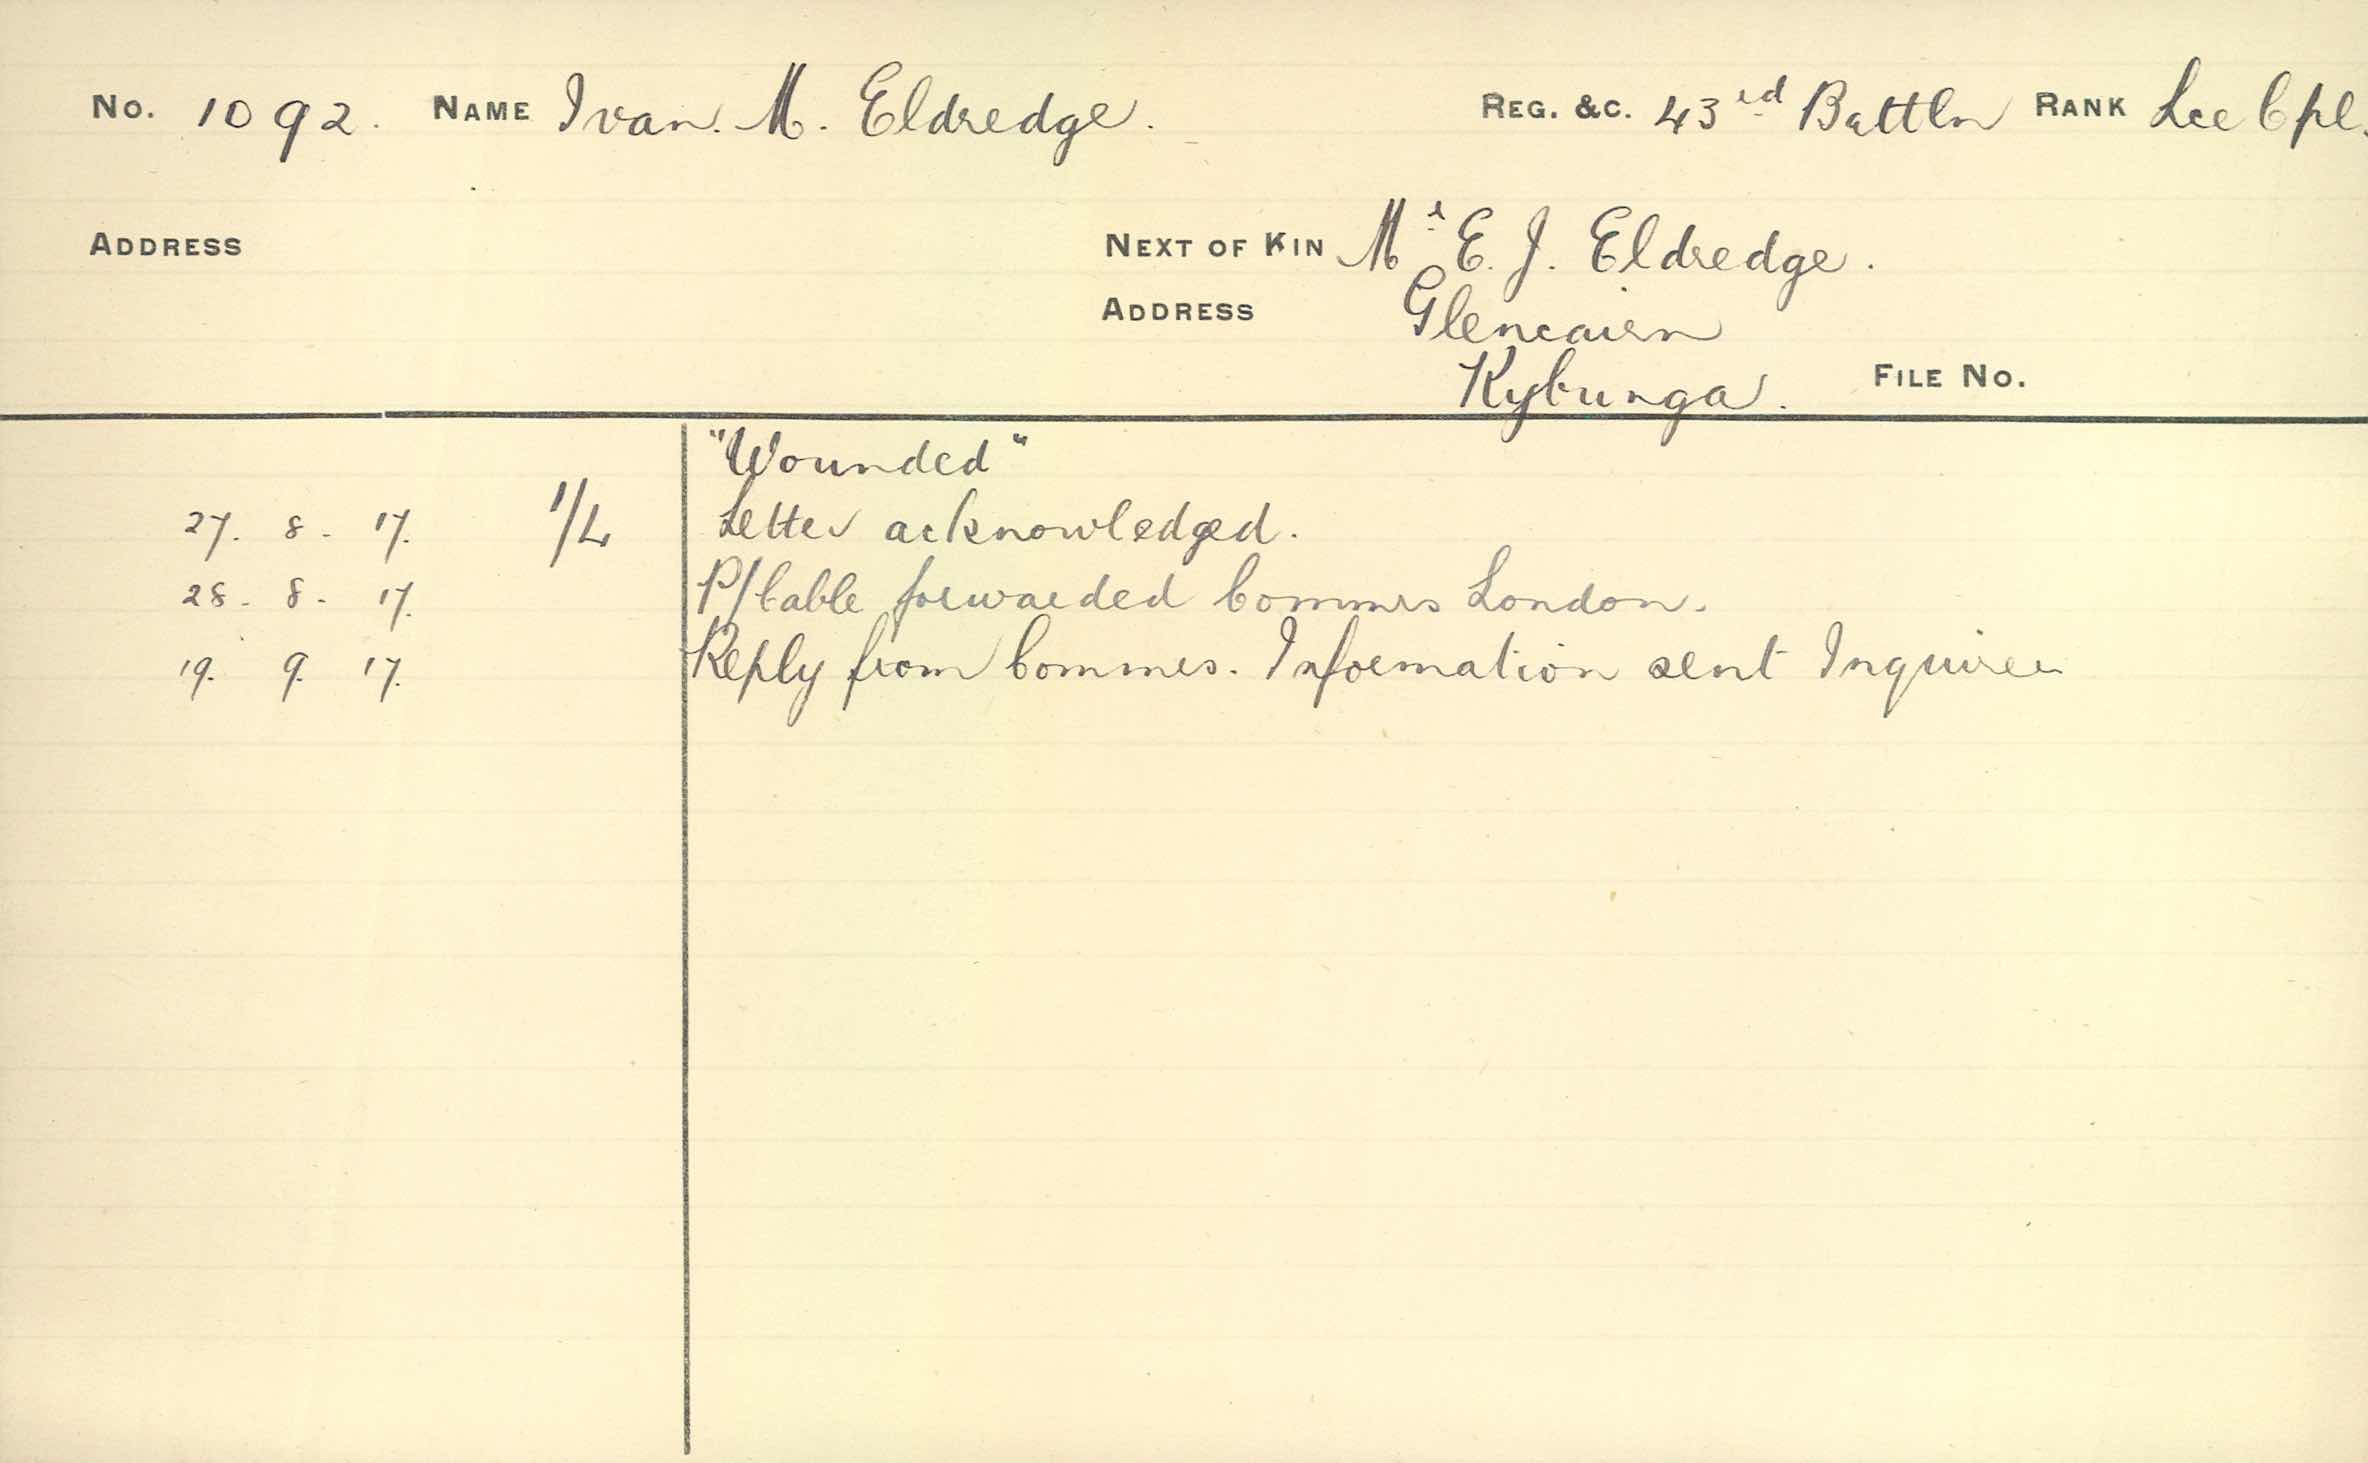 No. 1092. NAME Ivan. M. Eldredge. REG. &C. 43rd Battln RANK Lce Cpl.
ADDRESS NEXT OF KIN Mr E. J. Eldredge.
ADDRESS Glencairn
Kybunga. FILE No.
"Wounded"
27. 8. 17. 1/L Letter acknowledged.
28. 8. 17. P/Cable forwarded Commrs London.
19. 9. 17. Reply from Commrs. Information sent Inquirer